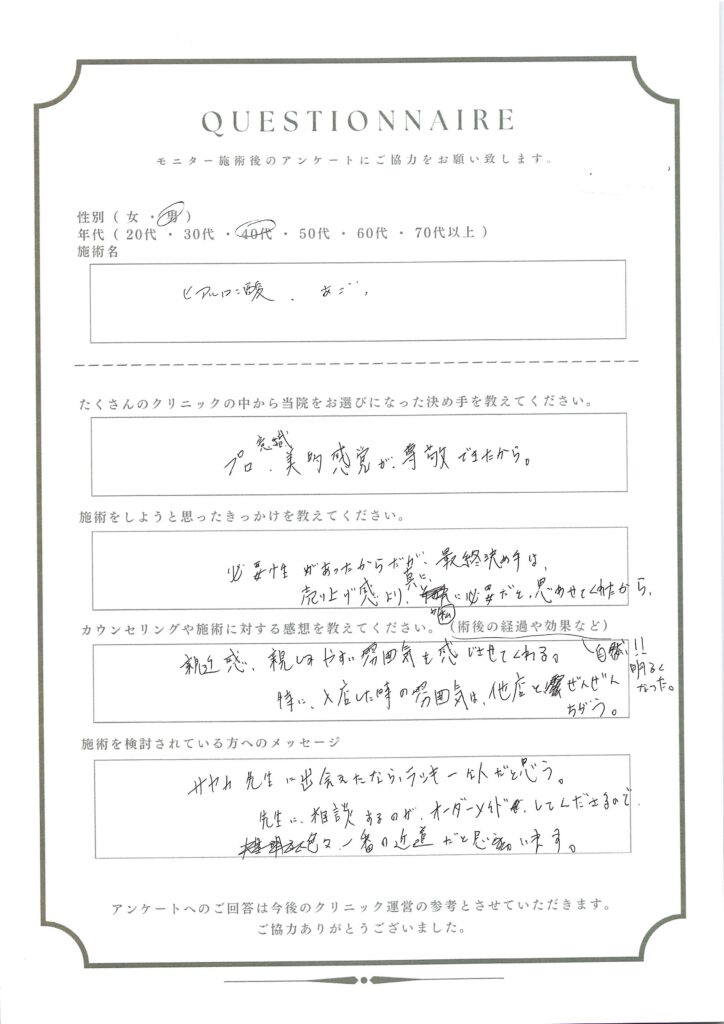 QUESTIONNAIRE
モニター施術後のアンケートにご協力をお願い致します。
性別 ( 女 ・ 男 )
年代 ( 20代 ・ 30代 ・ 40代 ・ 50代 ・ 60代 ・ 70代以上 )
施術名
ヒアルロン酸 、 あご、
たくさんのクリニックの中から当院をお選びになった決め手を教えてください。
プロ意識、美的感覚が、尊敬できたから。
施術をしようと思ったきっかけを教えてください。
必要性があったからだが、最終決め手は、
売り上げ感より、真に、私に必要だと、思わせてくれたから、
カウンセリングや施術に対する感想を教えてください。(術後の経過や効果など)
親近感、親しみやすい雰囲気も感じさせてくれる。
特に、入店した時の雰囲気は、他店とぜんぜん
ちがう。
!!
明るく
なった。
施術を検討されている方へのメッセージ
サヤカ先生に出会えたなら、ラッキーな人だと思う。
先生に、相談するのが、オーダーメイド、してくださるので、
色々、一番の近道だと思います。
アンケートへのご回答は今後のクリニック運営の参考とさせていただきます。
ご協力ありがとうございました。